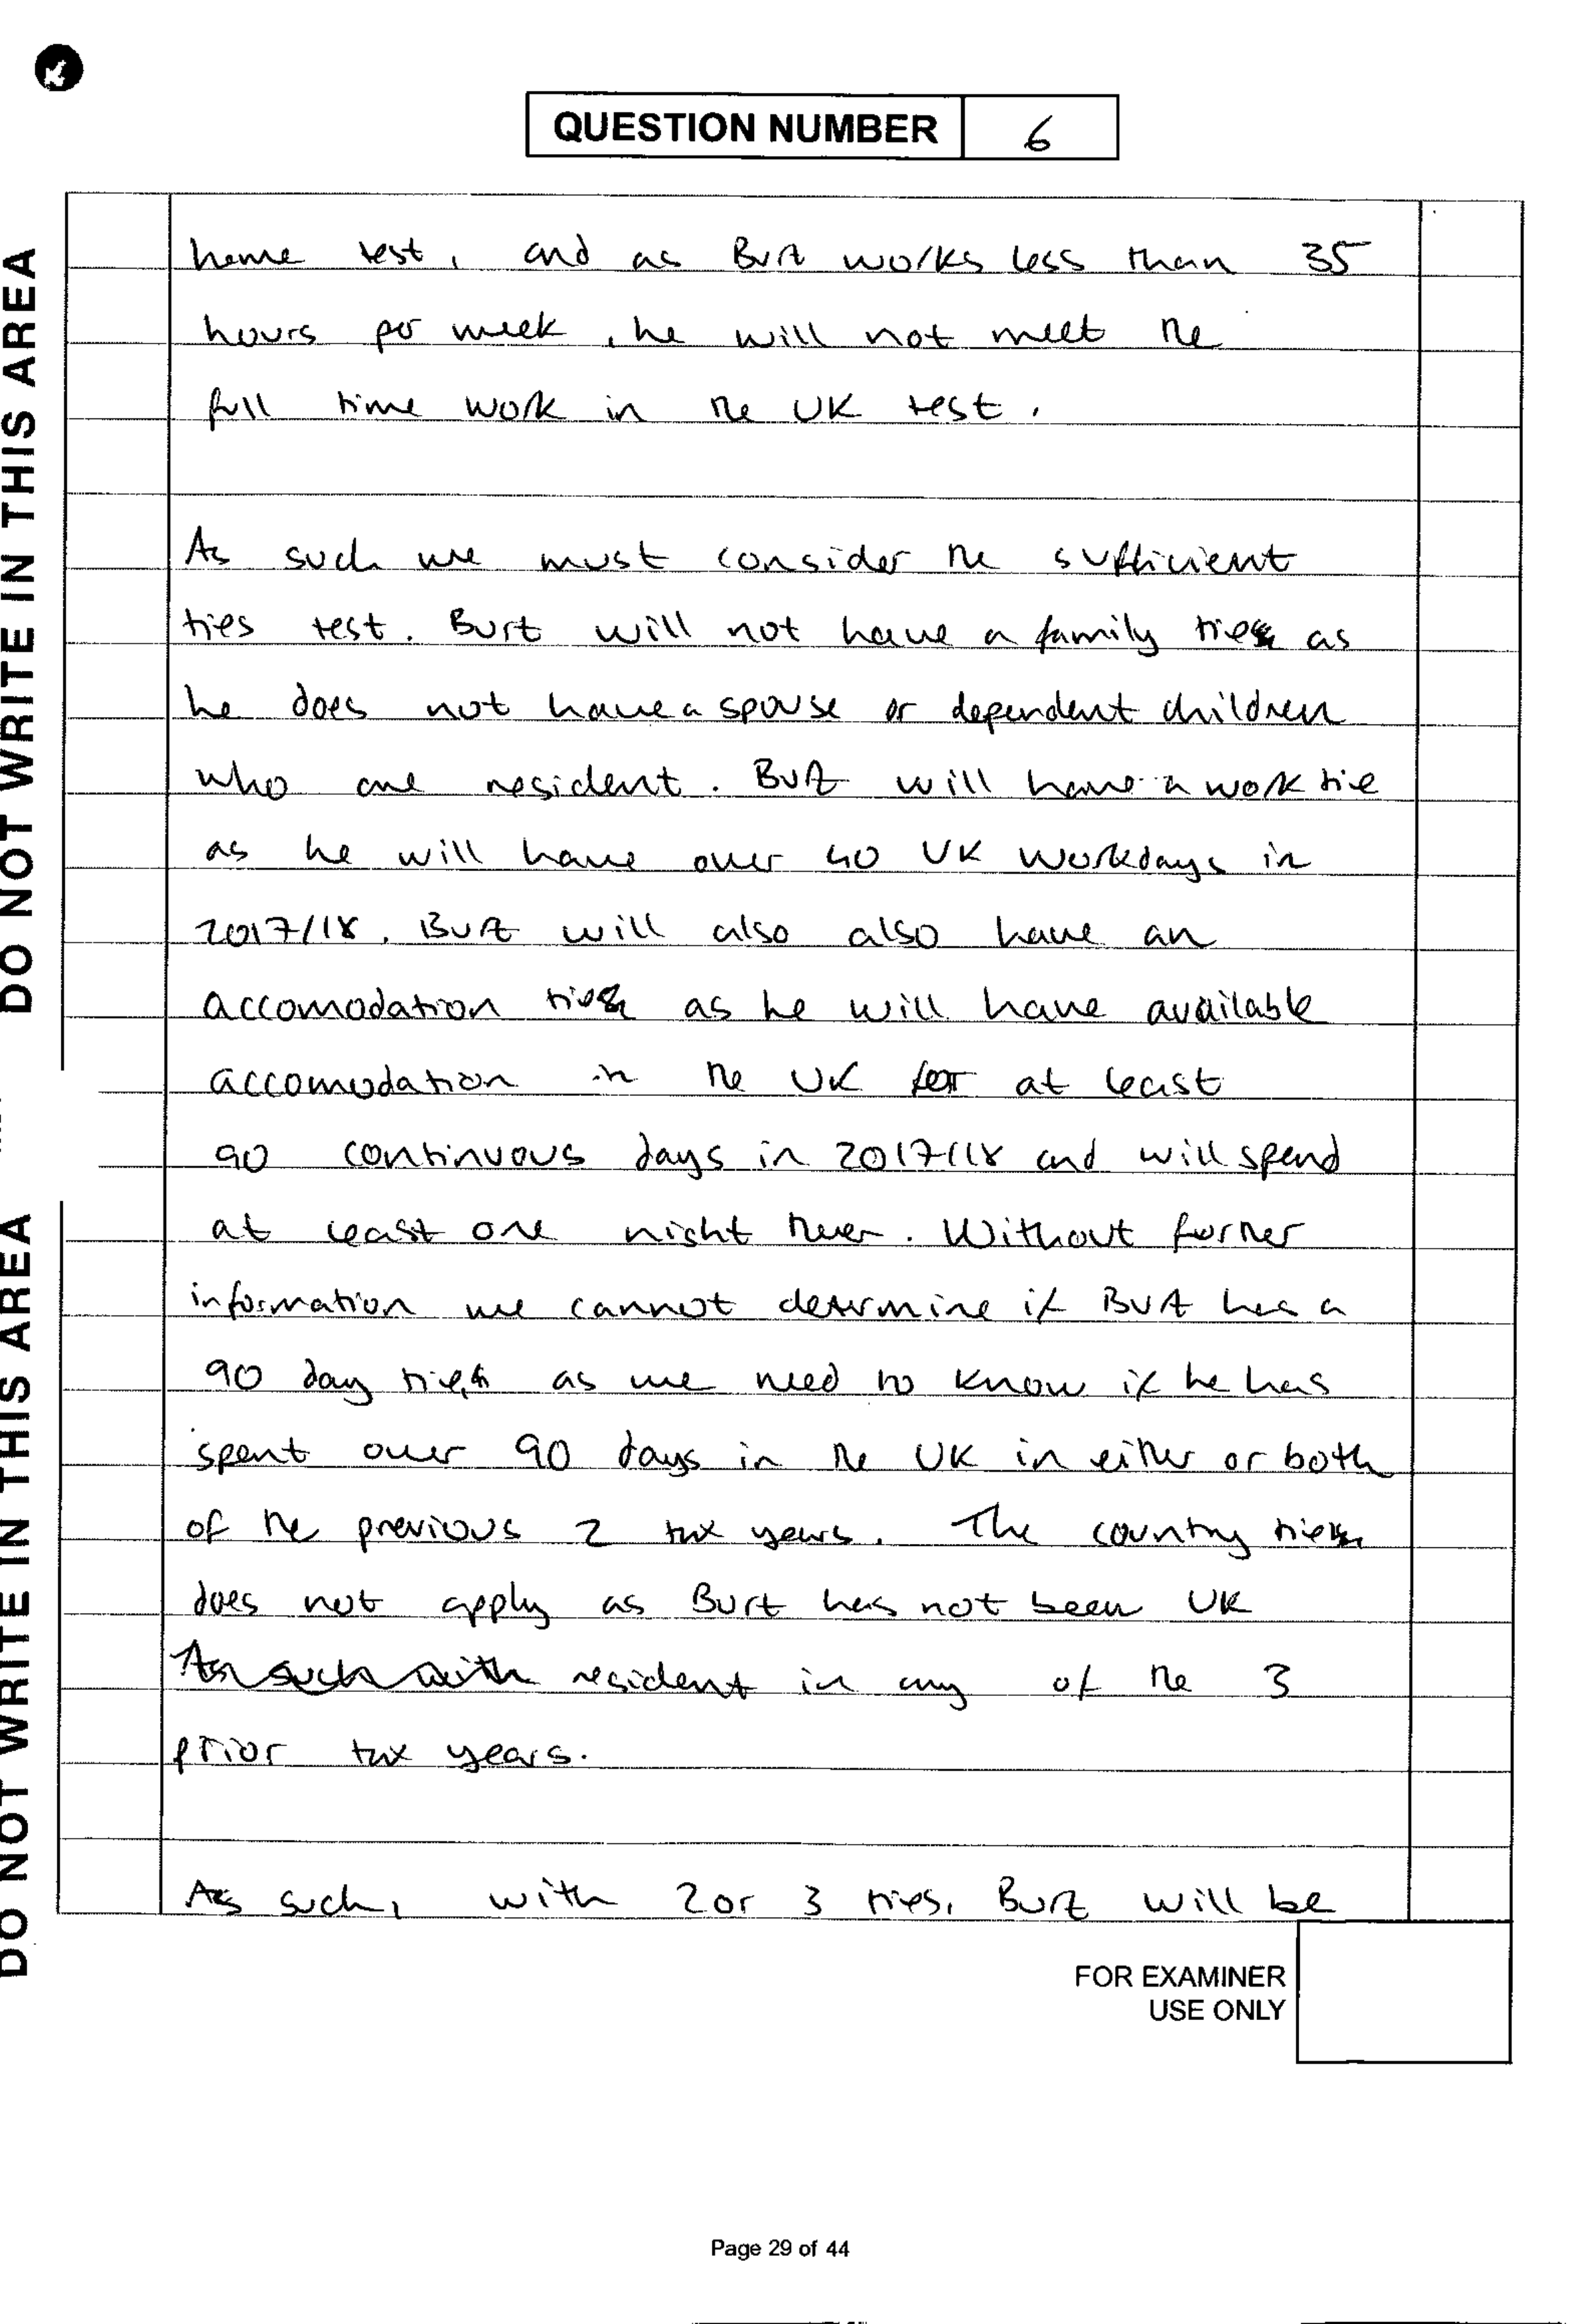 QUESTION NUMBER 6
home test, and as Burt works less than 35
hours per week, he will not meet the
full time work in the UK test.
As such we must consider the sufficient
ties test. Burt will not have a family tie as
he does not have a spouse or dependent children
who are resident. Burt will have a work tie
as he will have over 40 UK workdays in
2017/18. Burt will also also have an
accomodation tie as he will have available
accomodation in the UK for at least
90 continuous days in 2017/18 and will spend
at least one night there. Without further
information we cannot determine if Burt has a
90 day tie as we need to know if he has
spent over 90 days in the UK in either or both
of the previous 2 tax years. The country tie
does not apply as Burt has not been UK
As such with resident in any of the 3
prior tax years.
As such, with 2 or 3 ties, Burt will be
FOR EXAMINER
USE ONLY
Page 29 of 44
DO NOT WRITE IN THIS AREA
DO NOT WRITE IN THIS AREA